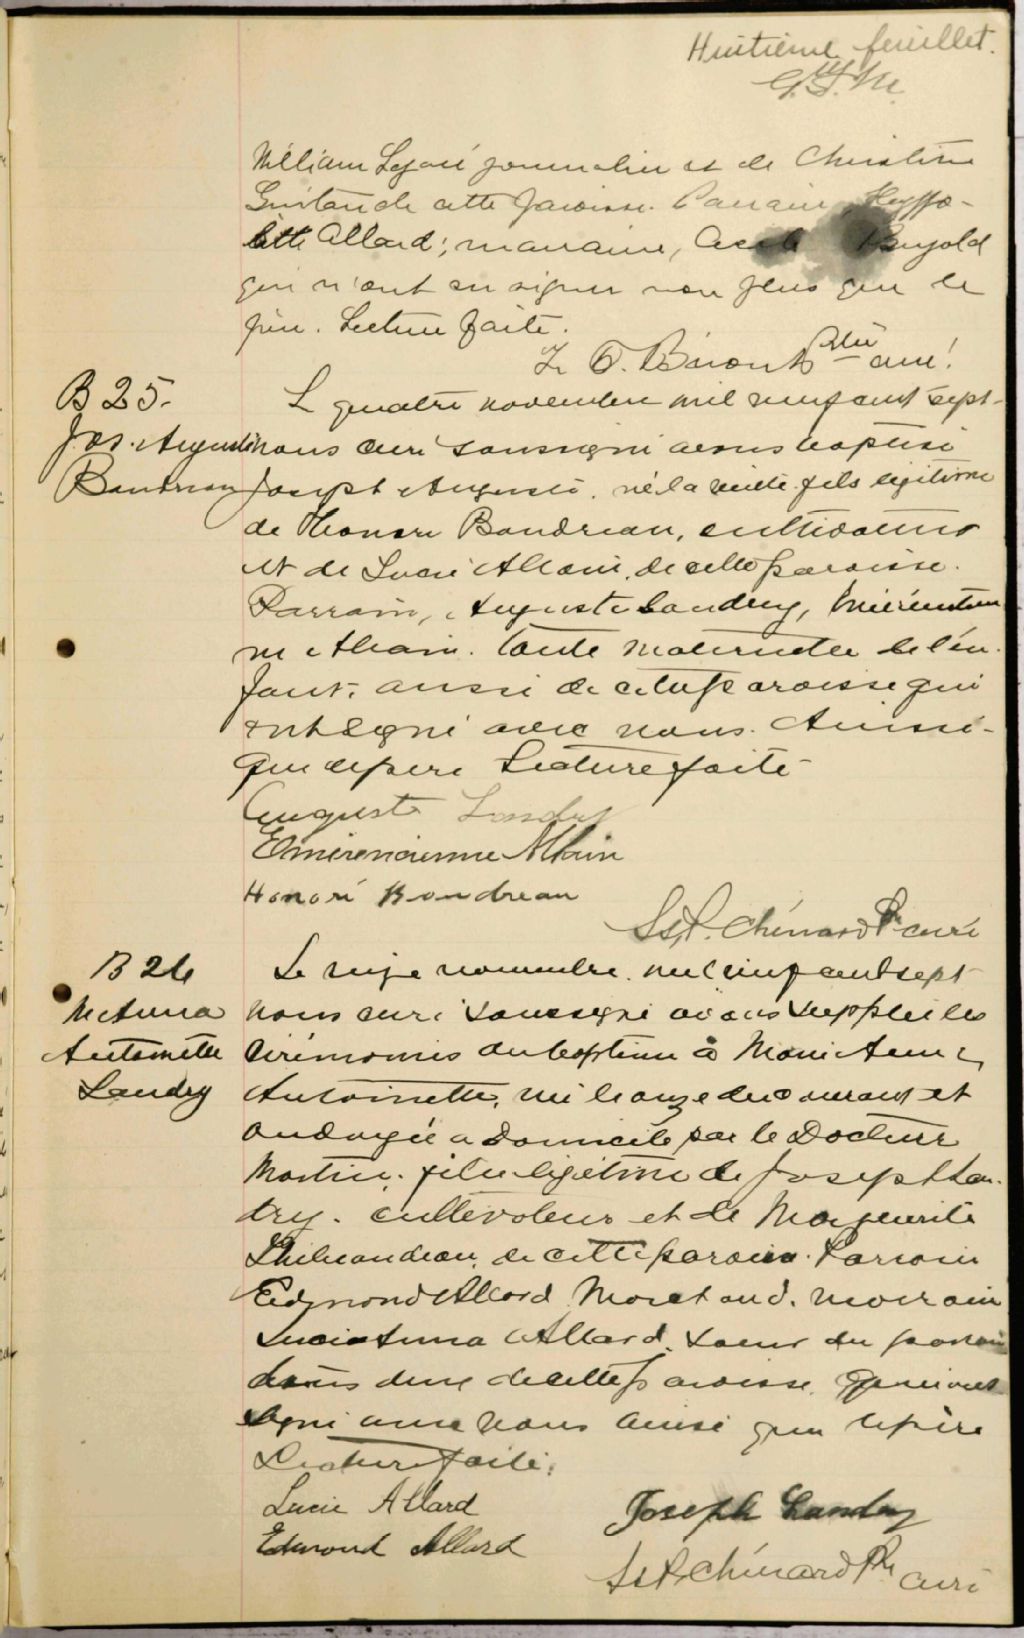 Huitième feuillet.
G. J. M.
William Legaré journalier et de Christine
de cette paroisse. Parrain, Hyppo-
litte Allard; marraine, Cecile Bujold
qui n'ont su signer non plus que le
père. Lecture faite.
curé
B 25.
Le quatre novembre mil neuf cent sept
Jos. Augustin nous curé soussigné avons baptisé
Boudreau Joseph Auguste, né la veille fils légitime
de Honoré Boudreau, cultivateur
et de Lucie Allain, de cette paroisse.
Parrain, Auguste Landry,
ne Allain. tante maternelle de l'en-
fant. aussi de cette paroisse qui
ont signé avec nous. Ainsi
que le père Lecture faite
Auguste Landry
Emerencienne Allain
Honoré Boudreau
Ss. P. Chénard Ptre curé
B 26
Le novembre. mil neuf cent sept
M Anna nous curé soussigné avons suppléé les
Antoinette cérémonies du baptême à Marie Anna
Landry Antoinette, née le onze du courant et
ondoyée a domicile par le Docteur
Martin. fille légitime de Joseph Lan-
dry. cultivateur et de Marguerite
Thibeaudeau, de cette paroisse. Parrain
Edmond Allard marraine
Lucie Anna Allard, soeur du parrain
tous deux de cette paroisse. qui ont
signé avec nous ainsi que le père
Lecture faite.
Lucie Allard
Joseph Landry
Edmond Allard
Ss. P. Chénard Ptre curé